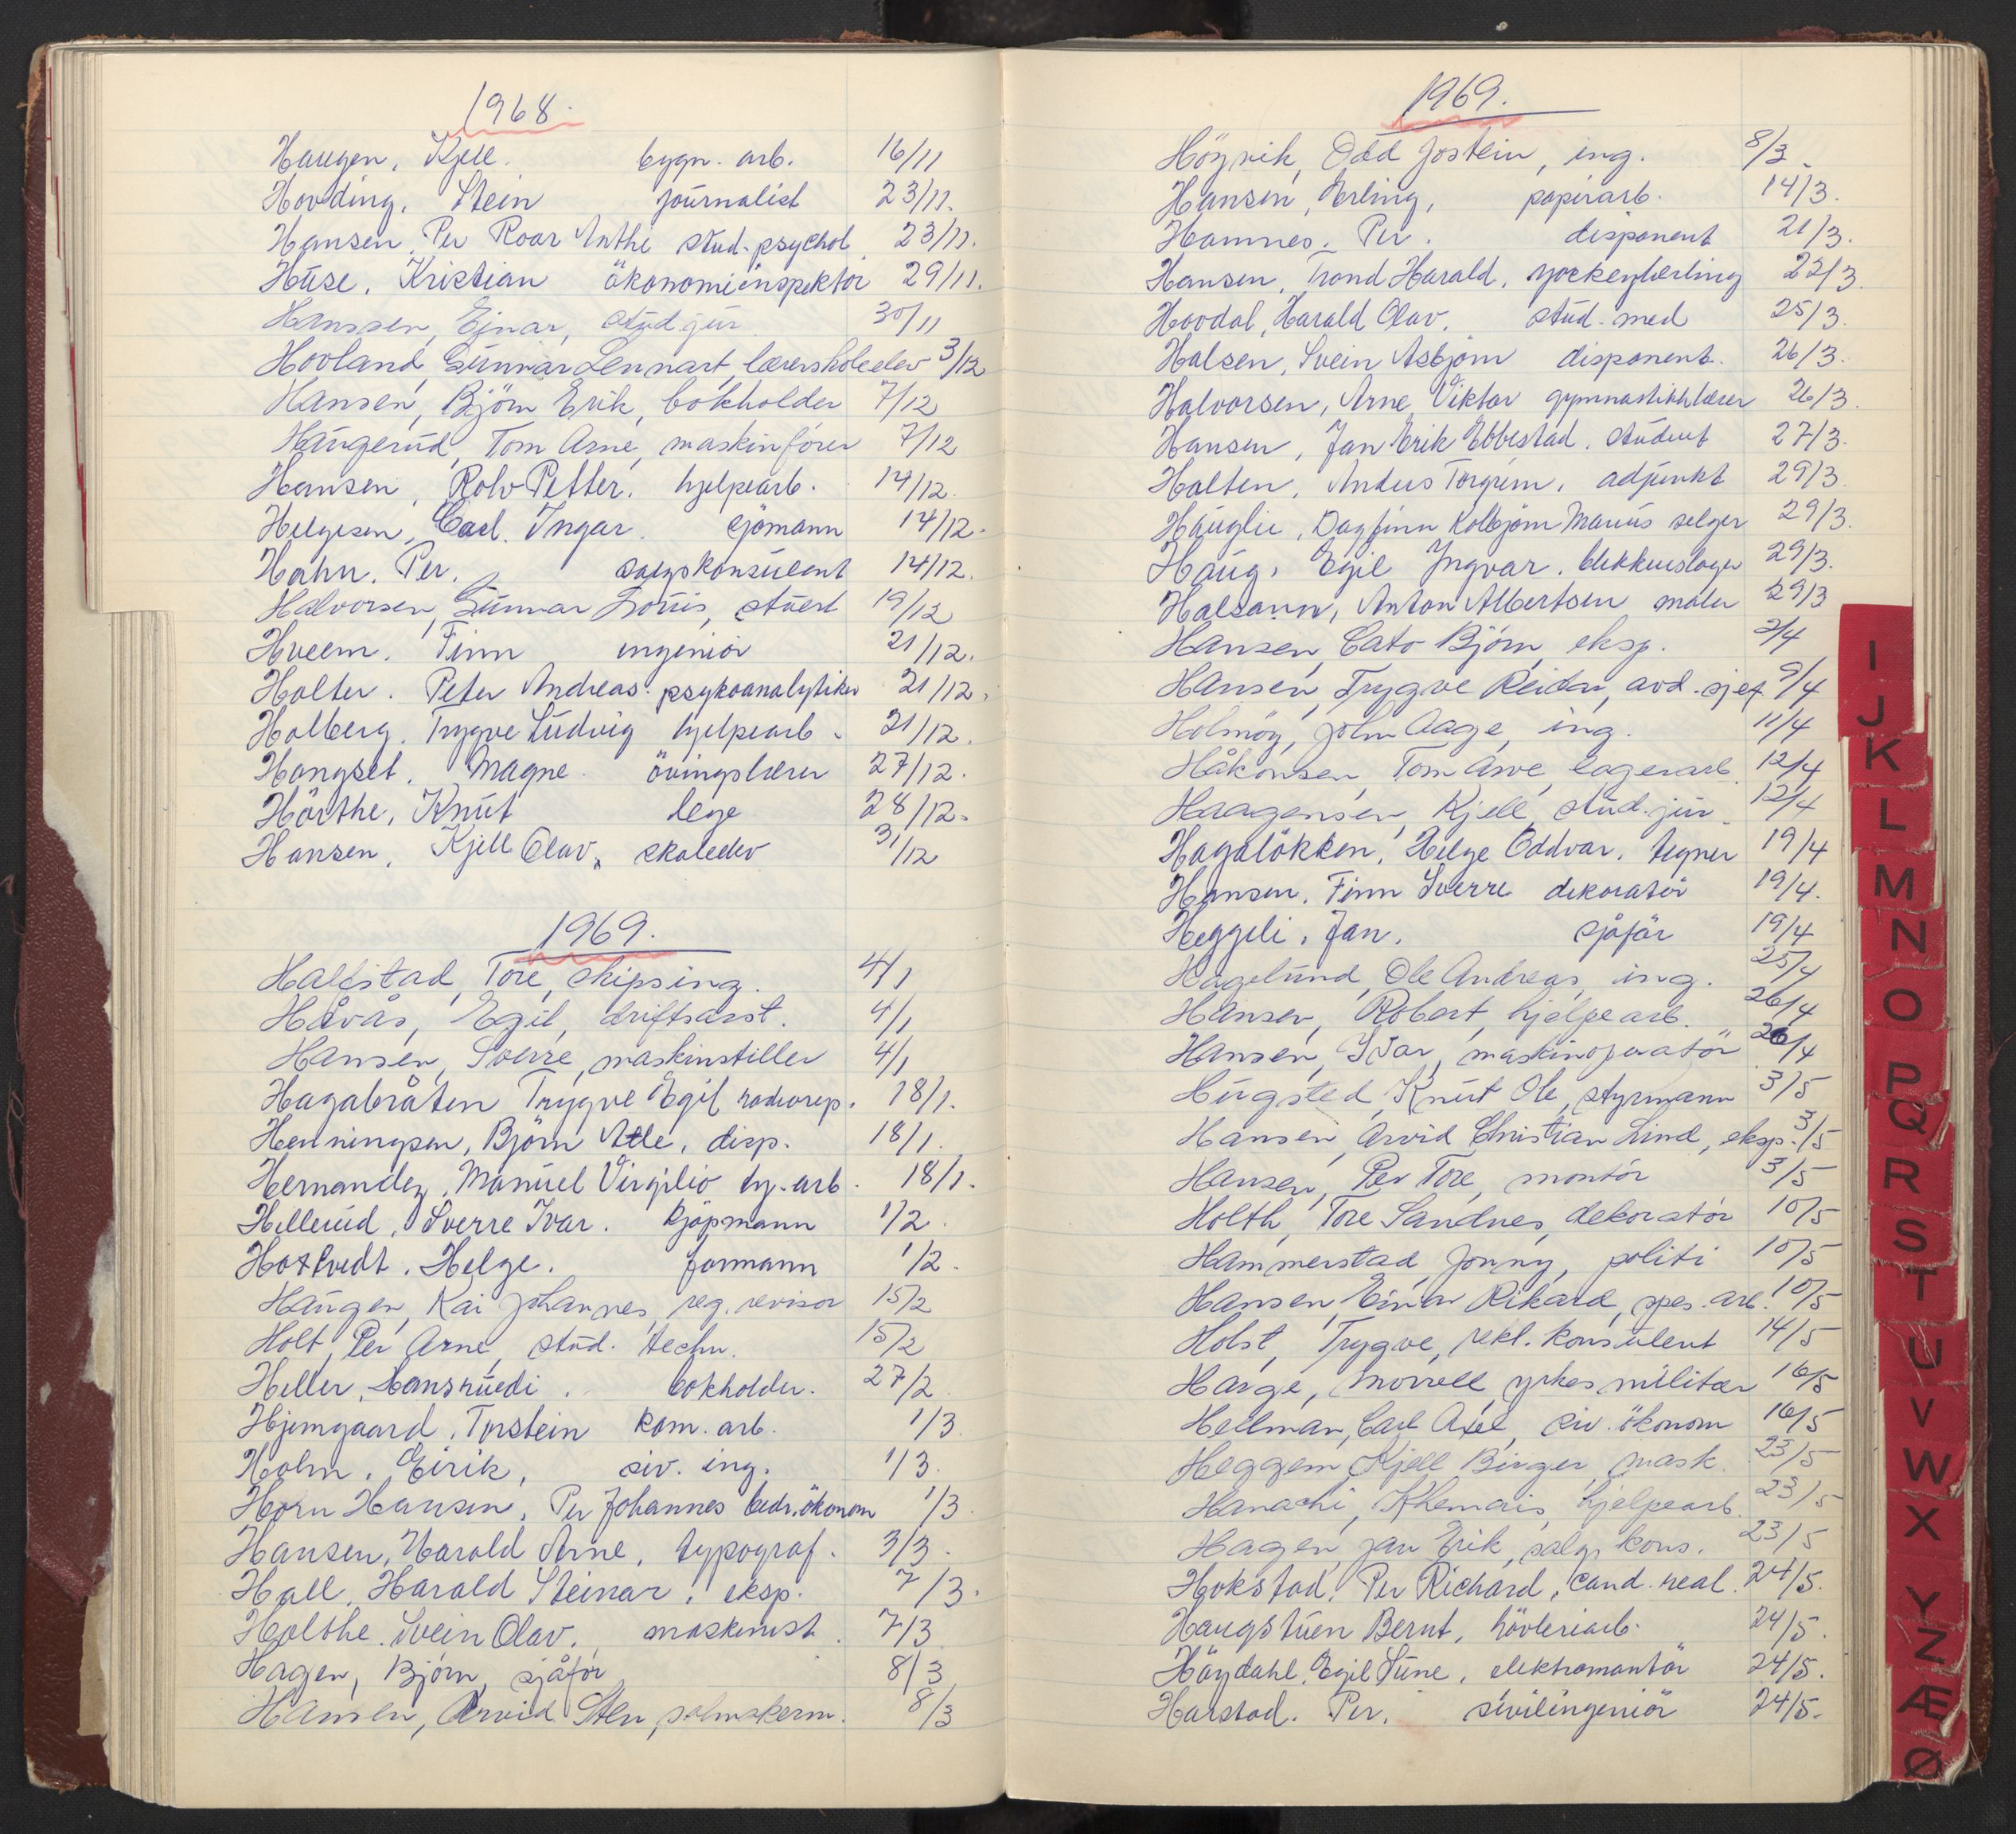 1968.
Haugen, Kjell. bygn. arb. 16/11
Hovding, Stein journalist 23/11.
Hansen, Per Roar Anthi stud. psychol. 23/11.
Huse, Kristian ökonomiinspektör 29/11.
Hanssen, Ejnar, stud jur 30/11
Hovland, Gunnar Lennart, lærerskoleelev 3/12
Hansen, Björn Erik, bokholder 7/12
Haugerud, Tom Arne, maskinförer 7/12
Hansen, Rolv Petter, hjelpearb. 14/12.
Helgesen, Carl Ingar. sjömann 14/12.
Hahn, Per, salgskonsulent 14/12.
Halvorsen, Gunnar Louis, stuert 19/12
Hveem, Finn ingeniör 21/12.
Holter. Peter Andreas. psykoanalytiker 21/12.
Holberg, Trygve Ludvig hjelpearb. 21/12.
Hongset. Magne. övingslærer 27/12.
Hörthe, Knut lege 28/12.
Hansen, Kjell Olav, skoleelev 31/12
1969.
Halfstad, Tore, skipsing. 4/1
Håvås, Egil, driftsasst. 4/1
Hansen, Sverre, maskinstiller 4/1
Hagabråten Trygve Egil radiorep. 18/1.
Henningsen, Björn Atle, disp. 18/1.
Hernandez, Manuel Virgilio ty. arb. 18/1.
Hellerud, Sverre Ivar. kjöpmann 1/2.
Hostvedt. Helge. formann 1/2.
Haugen, Kai Johannes, reg. revisor 15/2
Holt, Per Arne, stud. techn. 15/2
Heller, Hansruedi. bokholder. 27/2.
Hjemgaard, Torstein kom. arb. 1/3.
Holm, Eirik, siv. ing. 1/3.
Horn Hansen, Per Johannes bedr.ökonom 1/3.
Hansen, Harald Arne, typograf. 3/3.
Hall, Harald Steinar, eksp. 7/3.
Holthe, Svein Olav, maskinist. 7/3
Hagen, Björn, sjåför 8/3
Hansen, Arvid Sten, 8/3
1969.
Höyvik, Odd Jostein, ing. 8/3.
Hansen, Erling, papirarb. 14/3.
Hamnes. Per. disponent 21/3.
Hansen, Trond Harald, 22/3.
Hovdal, Harald Olav. stud. med 25/3.
Halsen, Svein Asbjörn disponent. 26/3.
Halvorsen, Arne Viktor gymnastikklærer 26/3.
Hansen, Jan Erik Ebbestad. student 27/3.
Holten, Anders Torgrim, adjunkt 29/3.
Hauglie, Dagfinn Kolbjörn Marius selger 29/3.
Haug, Egil Ingvar. blikkenslager 29/3.
Anton Albertsen maler 29/3
Hansen, Cato Björn, eksp. 2/4
Hansen, Trygve Reidar, avd. sjef 9/4
Holmöy, John Aage, ing. 11/4
Håkonsen, Tom Arve, lagerarb. 12/4
Haagensen, Kjell, stud. jur. 12/4
Hagalökken, Helge Oddvar, tegner 19/4
Hansen, Finn Sverre dekoratör 19/4.
Heggeli, Jan. sjåför 19/4
Hagelund, Ole Andreas, ing. 25/4
Hansen, Robert, hjelpearb. 26/4
Hansen, Ivar, maskinoperatör 26/4
Hugsted, Knut Ole, styrmann 3/5
Hansen, Arvid Christian Lind, eksp. 3/5
Hansen, Per Tore, montör 3/5
Holth, Tore Sandnes, dekoratör 10/5
Hammerstad Jonny, politi 10/5
Hansen, Einar Rikard, spes. arb. 10/5
Holst, Trygve, rekl. konsulent 14/5
Harge, Morrell, yrkesmilitær 16/5
Hellman, Carl Axel, siv. ökonom 16/5
Heggem, Kjell Birger, mask. 23/5
Hanachi, Khemais, hjelpearb. 23/5
Hagen, Jan Erik, salgs kons. 23/5
Hokstad, Per Richard, cand. real. 24/5.
Haugstuen Bernt, hövleriarb. 24/5.
Höydahl, Egil Sune, elektromontör 24/5.
Harstad. Per. sivilingeniör 24/5.
I
J
K
L
M
N
O
P
Q
R
S
T
U
V
W
X
Y
Z
Æ
Ø